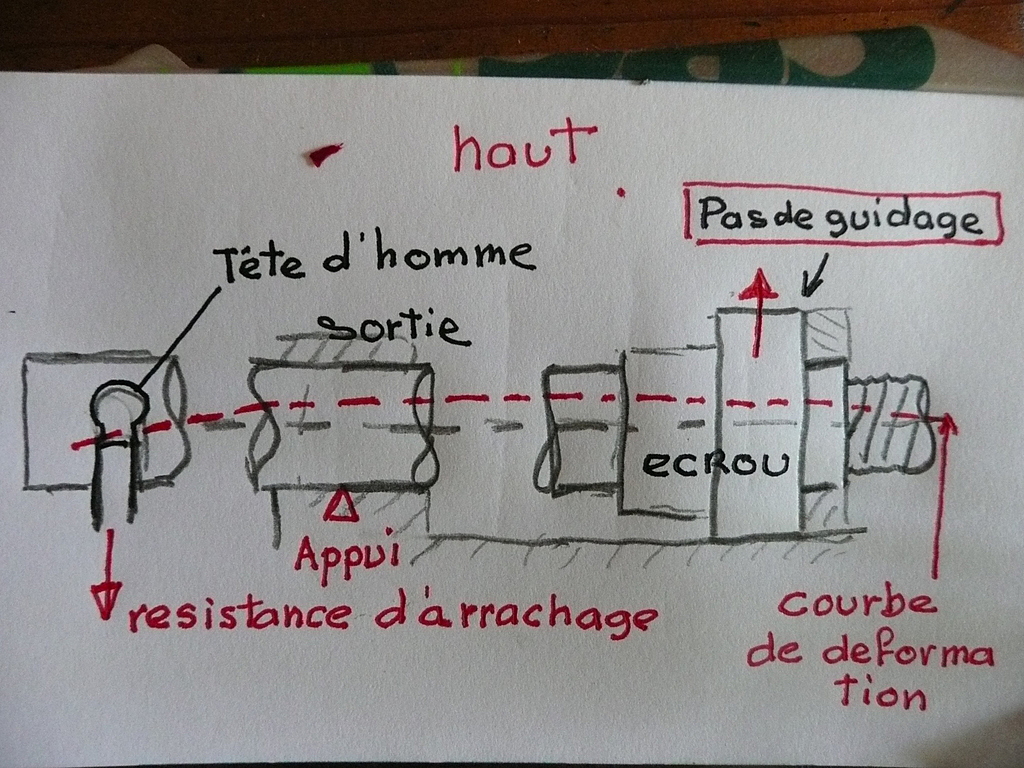 haut
Pas de guidage
Tête d'homme
sortie
ECROU
Appui
resistance d'arrachage
courbe
de deforma
tion